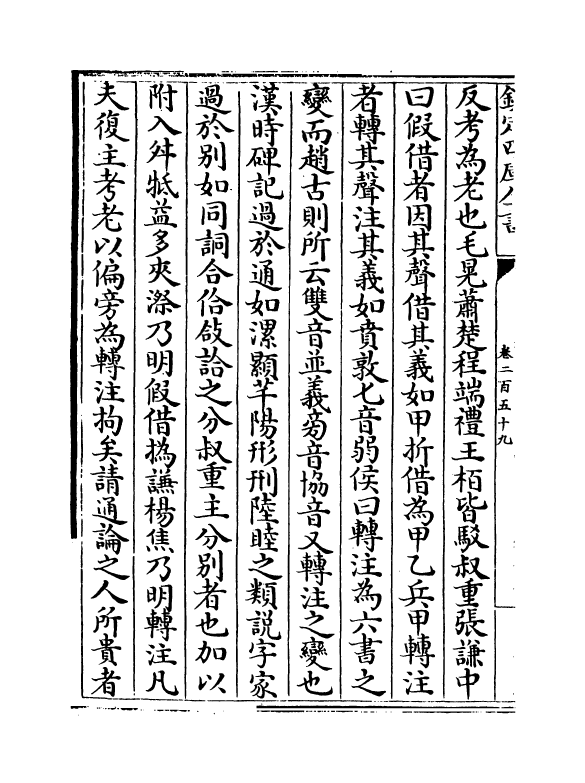 欽定四庫全書
卷二百五十九
反考為老也毛晃蕭楚程端禮王柏皆駁叔重張謙中
曰假借者因其聲借其義如甲折借為甲乙兵甲轉注
者轉其聲注其義如賁敦七音弱侯曰轉注為六書之
變而趙古則所云雙音並義旁音協音又轉注之變也
漢時碑記過於通如漯顯芊陽形刑陸睦之類説字家
過於別如同詷合佮敆詥之分叔重主分別者也加以
附入舛牴益多夾漈乃明假借撝謙楊焦乃明轉注凡
夫復主考老以偏旁為轉注拘矣請通論之人所貴者